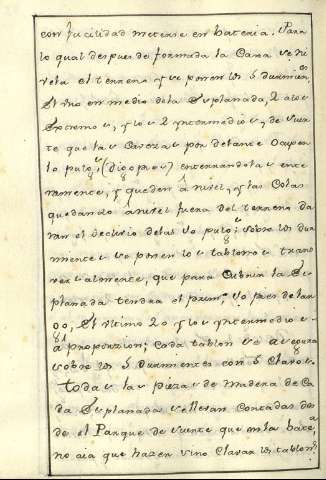 con facilidad meterse en bateria. Para
lo qual despues de formada la Cama se ni
vela el terreno y se ponen los 5 durmien.es
El uno en medio dela Esplanada, 2 alos
Estremos, y los 2 Yntermedios, de suer
te que las Caveras por delante Ocupen
pulg.s (digo pies) enterrandolas ente
ramente, y queden á nivel, y las Colas
quedando á nivel fuera del terreno da
ran el declivio delas pulg.s sobre los dur
mientes se ponen los tablones trans
versalmente, que para Cubrir la Es
planada tendra el prim.o pies de lar
go, El ultimo 20 y los Yntermedios
á proporzion; Cada tablon se asegura
sobre los 5 durmientes con 5 Clavos.
Todas las piezas de madera de Ca
da Esplanada se llevan Contadas des
de el Parque de suerte que en la bateria
no aia que hazer sino Clavar los tablon.s